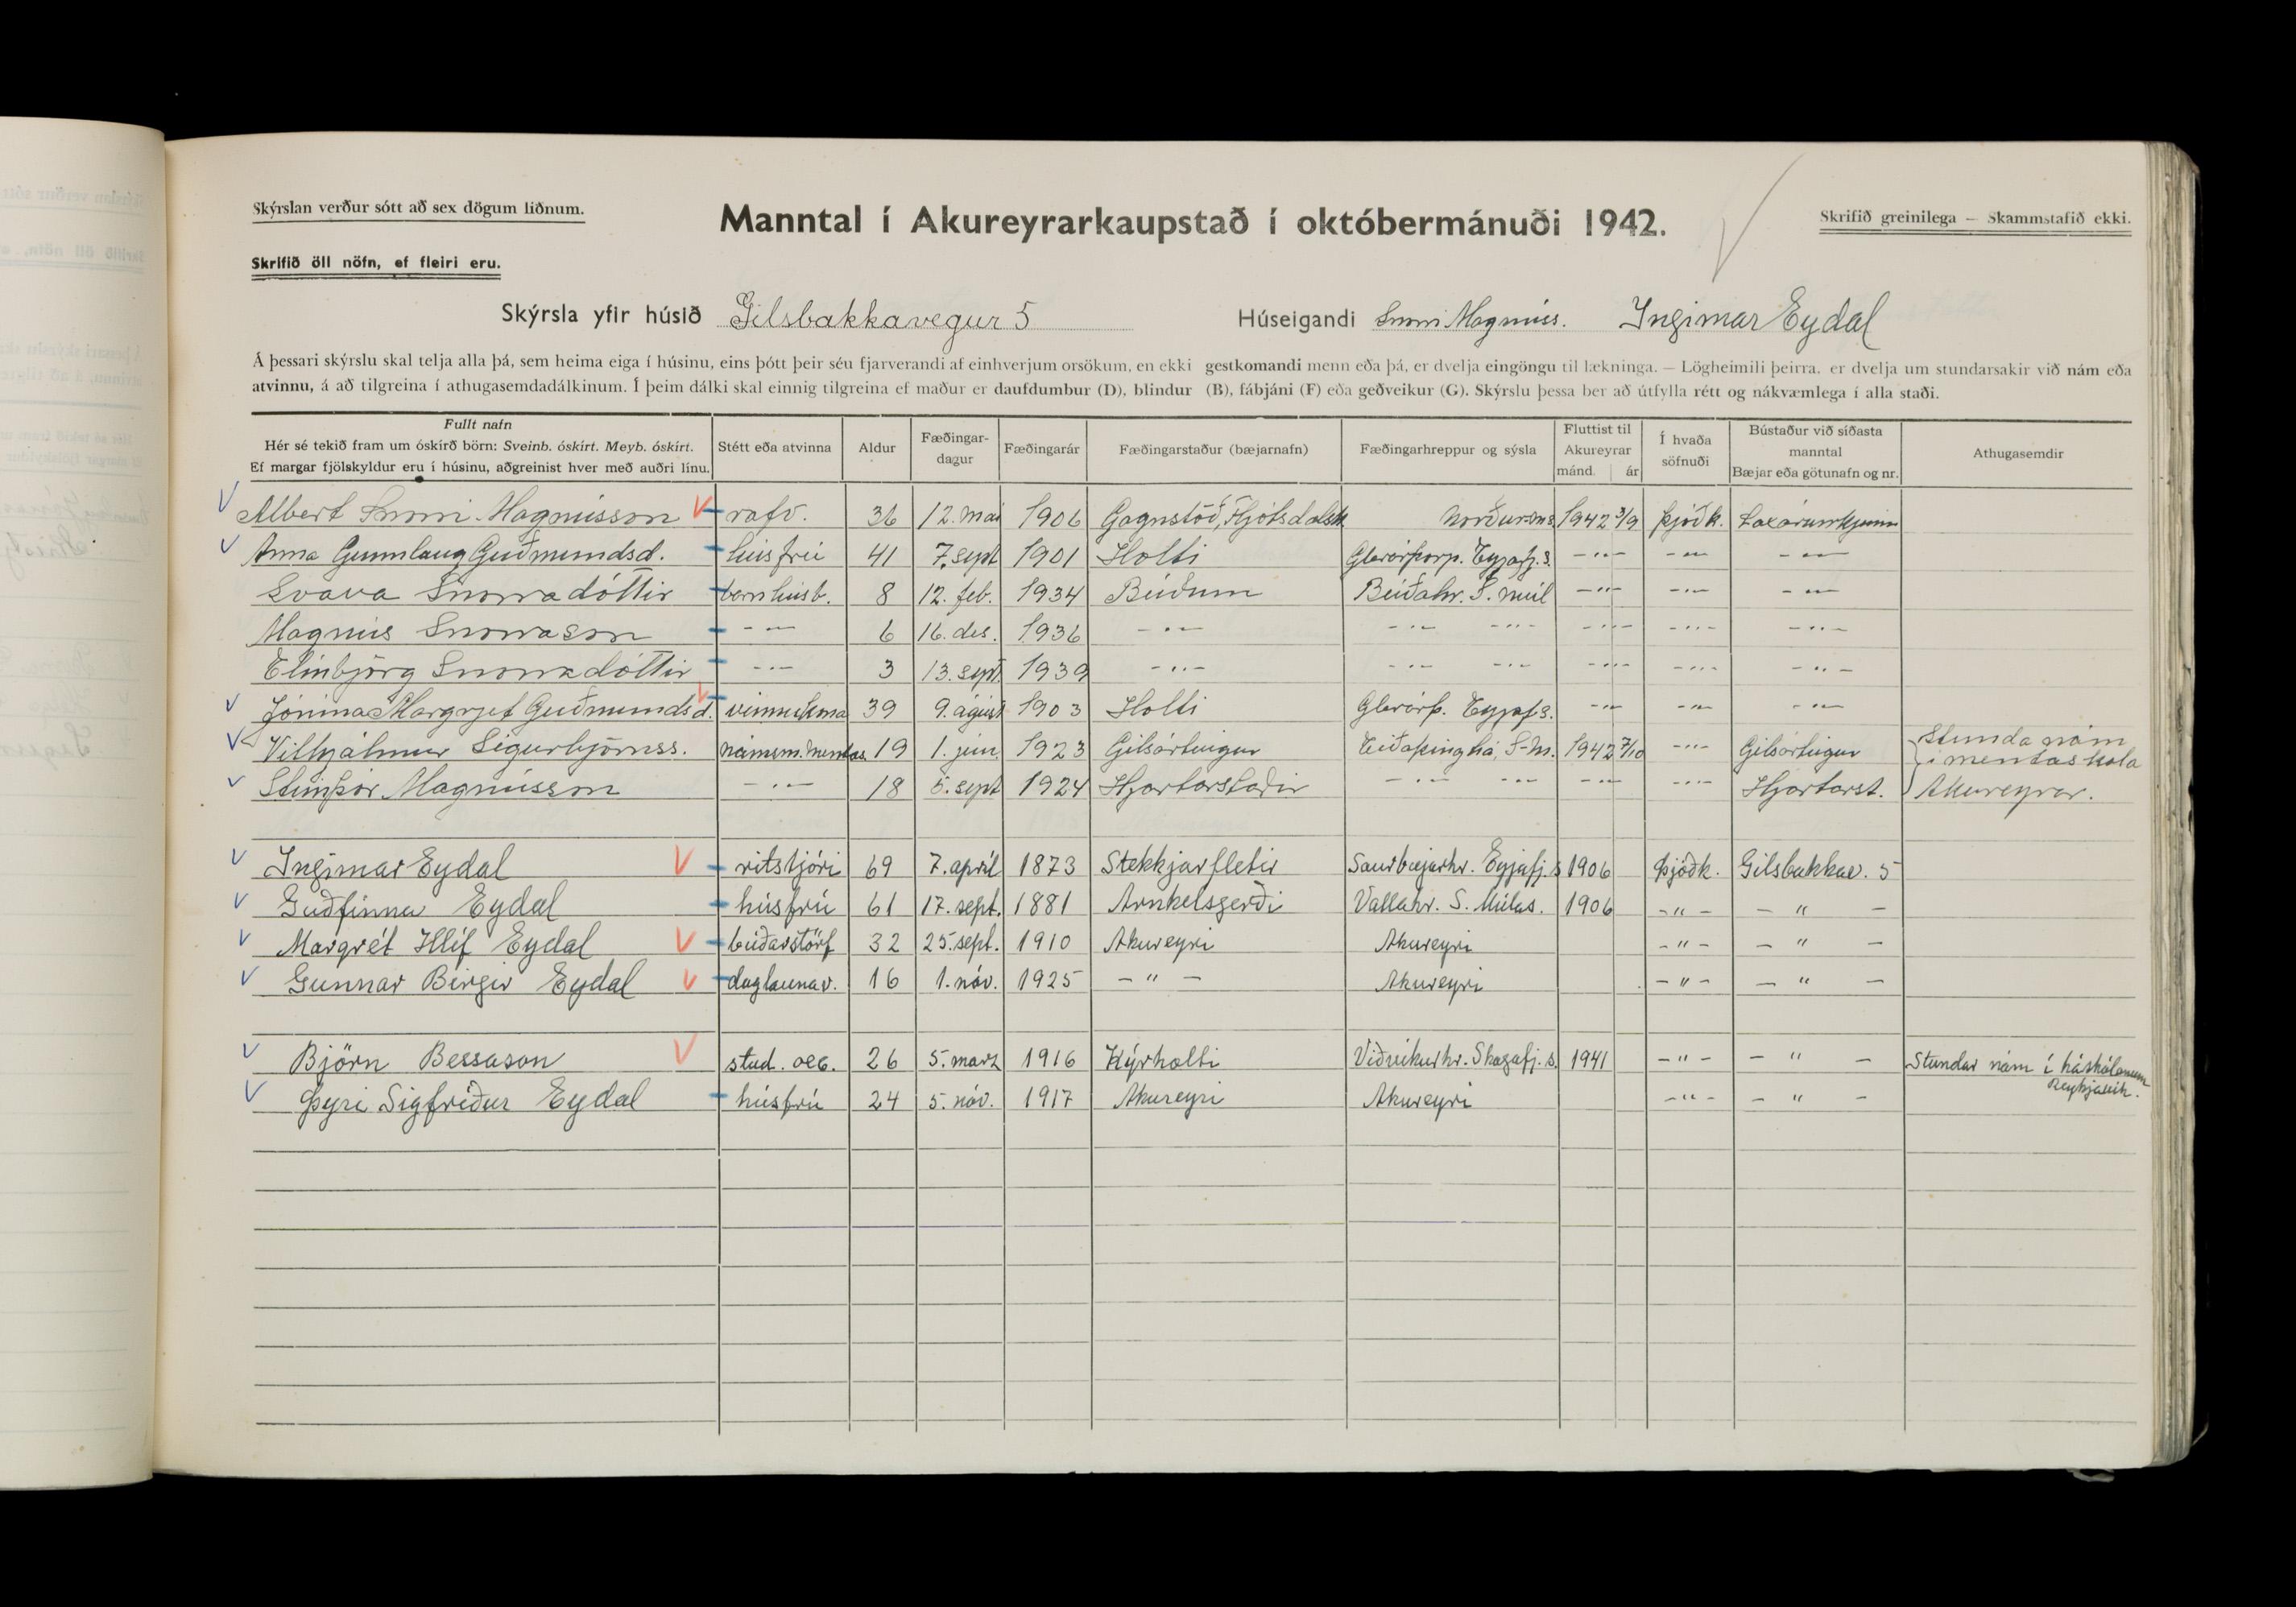 Skýrslan verður sótt að sex dögum liðnum.
Manntal í Akureyrarkaupstað í októbermánuði 1942.
Skrifið greinilega — Skammstafið ekki.
Skrifið öll nöfn, ef fleiri eru.
Skýrsla yfir húsið Gilsbakkavegur 5 Húseigandi Snorri Magnúss. Ingimar Eydal
Á þessari skýrslu skal telja alla þá, sem heima eiga í húsinu, eins þótt þeir séu fjarverandi af einhverjum orsökum, en ekki gestkomandi menn eða þá, er dvelja eingöngu til lækninga. — Lögheimili þeirra, er dvelja um stundarsakir við nám eða
atvinnu, á að tilgreina í athugasemdadálkinum. Í þeim dálki skal einnig tilgreina ef maður er daufdumbur (D), blindur (B), fábjáni (F) eða geðveikur (G). Skýrslu þessa ber að útfylla rétt og nákvæmlega í alla staði.
Fullt nafn
Hér sé tekið fram um óskírð börn: Sveinb. óskírt. Meyb. óskírt.
Ef margar fjölskyldur eru í húsinu, aðgreinist hver með auðri línu.
Stétt eða atvinna
Aldur
Fæðingar-
dagur
Fæðingarár
Fæðingarstaður (bæjarnafn)
Fæðingarhreppur og sýsla
Fluttist til
Akureyrar
mánd. ár
Í hvaða
söfnuði
Bústaður við síðasta
manntal
Bæjar eða götunafn og nr.
Athugasemdir
Albert Snorri Magnússon rafv. 36 12. mai 1906 Gagnstöð, Hjótsdalsh Norðurms. 1942 3/9 Þjóðk.
Anna Gunnlaug Guðmundsd. húsfrú 41 7. sept 1901 Holti Glerárþorp. Eyjafj.s. -"- -"- -"-
Svava Snorradóttir barn húsb. 8 12. feb. 1934 Búðum Búðahr. S. múl -"- -"- -"-
Magnús Snorrason -"- 6 16. des. 1936 -"- -"- -"- -"- -"- -"-
Elinbjörg Snorradóttir -"- 3 13. sept. 1939 -"- -"- -"- -"- -"- -"-
Jónína Margrjet Guðmundsd. vinnukona 39 9. ágúst 1903 Holti Glerárþ. Eyjafs. -"- -"- -"-
Vilhjálmur Sigurbjörnss. námsm. mentas. 19 1. jún. 1923 Gilsárteigur Eiðaþinghá, S-M. 1942 7/10 -"- Gilsárteigur Stunda nám
í mentaskóla
Steinþór Magnússon -"- 18 5. sept 1924 Hjartarstaðir -"- -"- -"- -"- Hjartarst. Akureyrar.
Ingimar Eydal ritstjóri 69 7. apríl 1873 Stekkjarfletir Saurbæjarhr. Eyjafj.s 1906 Þjóðk. Gilsbakkav. 5
Guðfinna Eydal húsfrú 61 17. sept. 1881 Arnkelsgerði Vallahr. S. Múlas. 1906 -"- -"-
Margrét Hlíf Eydal búðarstörf 32 25. sept. 1910 Akureyri Akureyri -"- -"-
Gunnar Birgir Eydal daglaunav. 16 1. nóv. 1925 -"- Akureyri -"- -"-
Björn Bessason stud. oec. 26 5. marz 1916 Kýrholti Viðvíkurhr. Skagafj.s. 1941 -"- -"- Stundar nám í háskólanum
Reykjavík.
Þyri Sigfríður Eydal húsfrú 24 5. nóv. 1917 Akureyri Akureyri -"- -"-